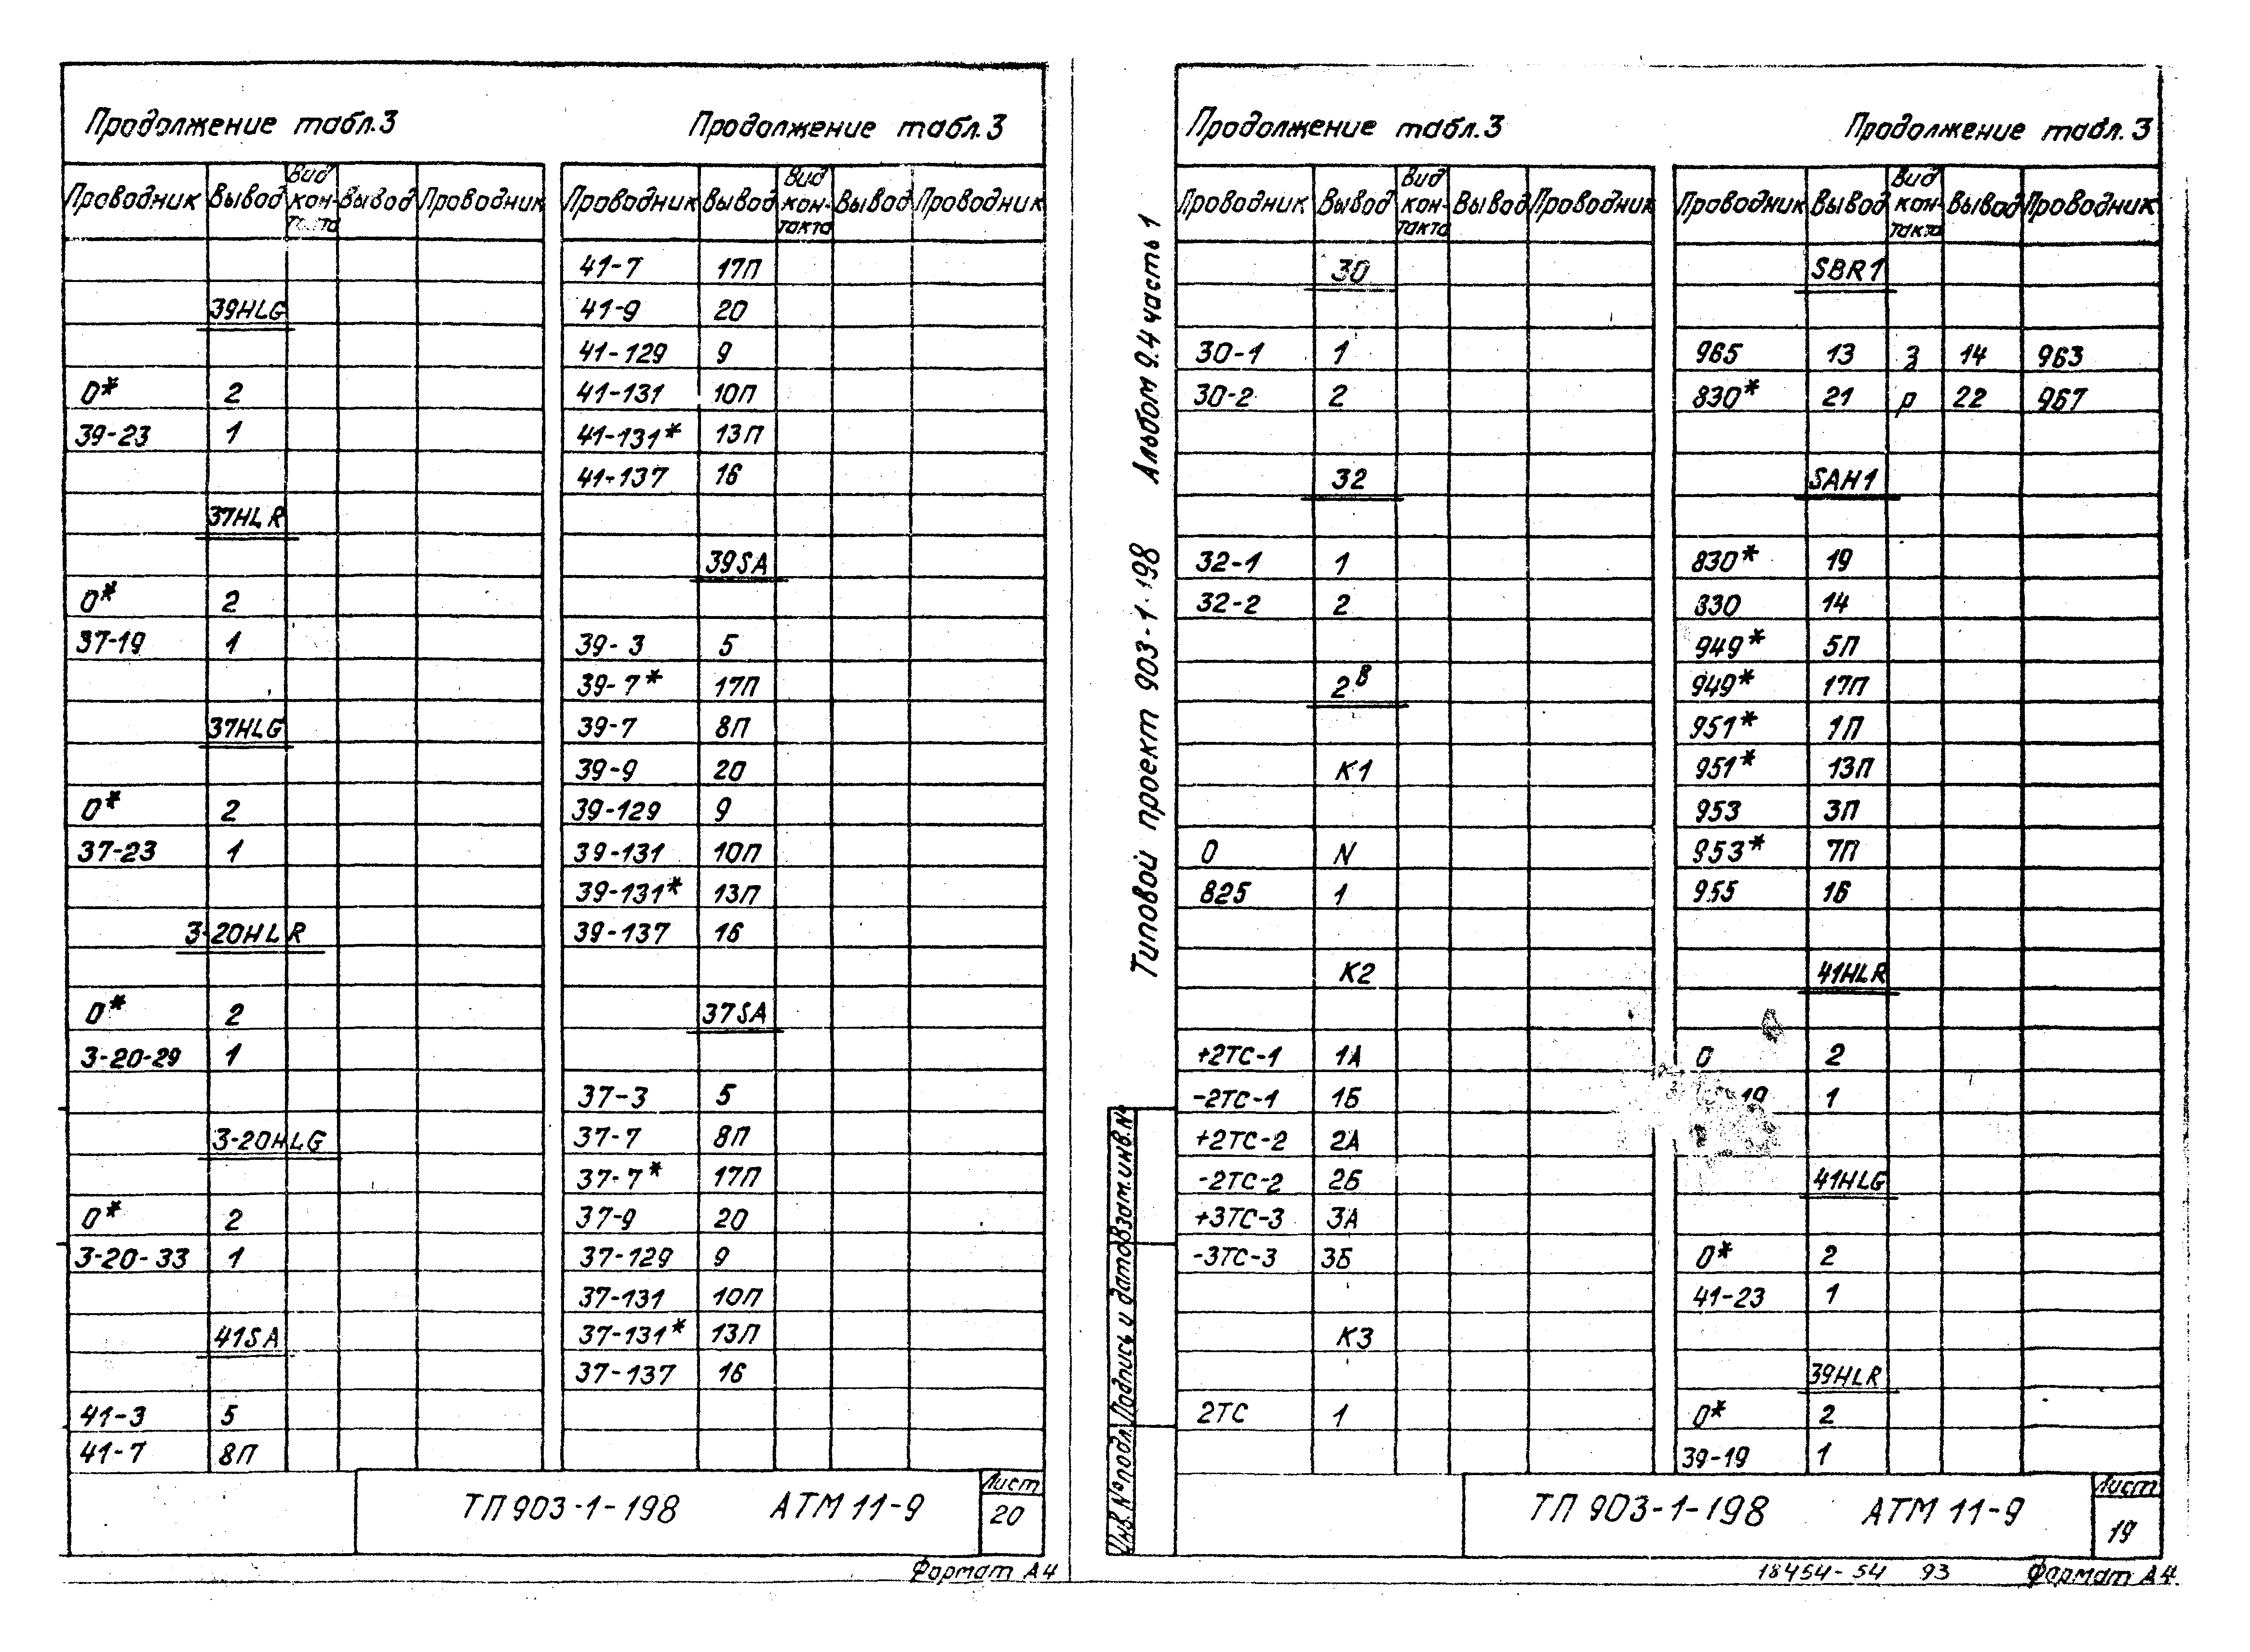 Продолжение табл.3
Проводник Вывод Вид контакта Вывод Проводник
39HLG
0* 2
39-23 1
37HLR
0* 2
37-19 1
37HLG
0* 2
37-23 1
3-20HLR
0* 2
3-20-29 1
3-20HLG
0* 2
3-20-33 1
41SA
41-3 5
41-7 8П
Продолжение табл.3
Проводник Вывод Вид контакта Вывод Проводник
41-7 17П
41-9 20
41-129 9
41-131 10П
41-131* 13П
41-137 16
39SA
39-3 5
39-7* 17П
39-7 8П
39-9 20
39-129 9
39-131 10П
39-131* 13П
39-137 16
37SA
37-3 5
37-7 8П
37-7* 17П
37-9 20
37-129 9
37-131 10П
37-131* 13П
37-137 16
ТП 903-1-198 АТМ 11-9
Лист
20
Формат А4
Типовой проект 903-1-198 Альбом 9.4 часть 1
Инв.№подл. Подпись и дата Взам.инв.№
Продолжение табл.3
Проводник Вывод Вид контакта Вывод Проводник
30
30-1 1
30-2 2
32
32-1 1
32-2 2
2В
К1
0 N
825 1
К2
+2ТС-1 1А
-2ТС-1 1Б
+2ТС-2 2А
-2ТС-2 2Б
+3ТС-3 3А
-3ТС-3 3Б
К3
2ТС 1
Продолжение табл.3
Проводник Вывод Вид контакта Вывод Проводник
SBR1
965 13 з 14 963
830* 21 р 22 967
SAH1
830* 19
830 14
949* 5П
949* 17П
951* 1П
951* 13П
953 3П
953* 7П
955 16
41HLR
0 2
19 1
41HLG
0* 2
41-23 1
39HLR
0* 2
39-19 1
ТП 903-1-198 АТМ 11-9
Лист
19
18454-54 93 Формат А4